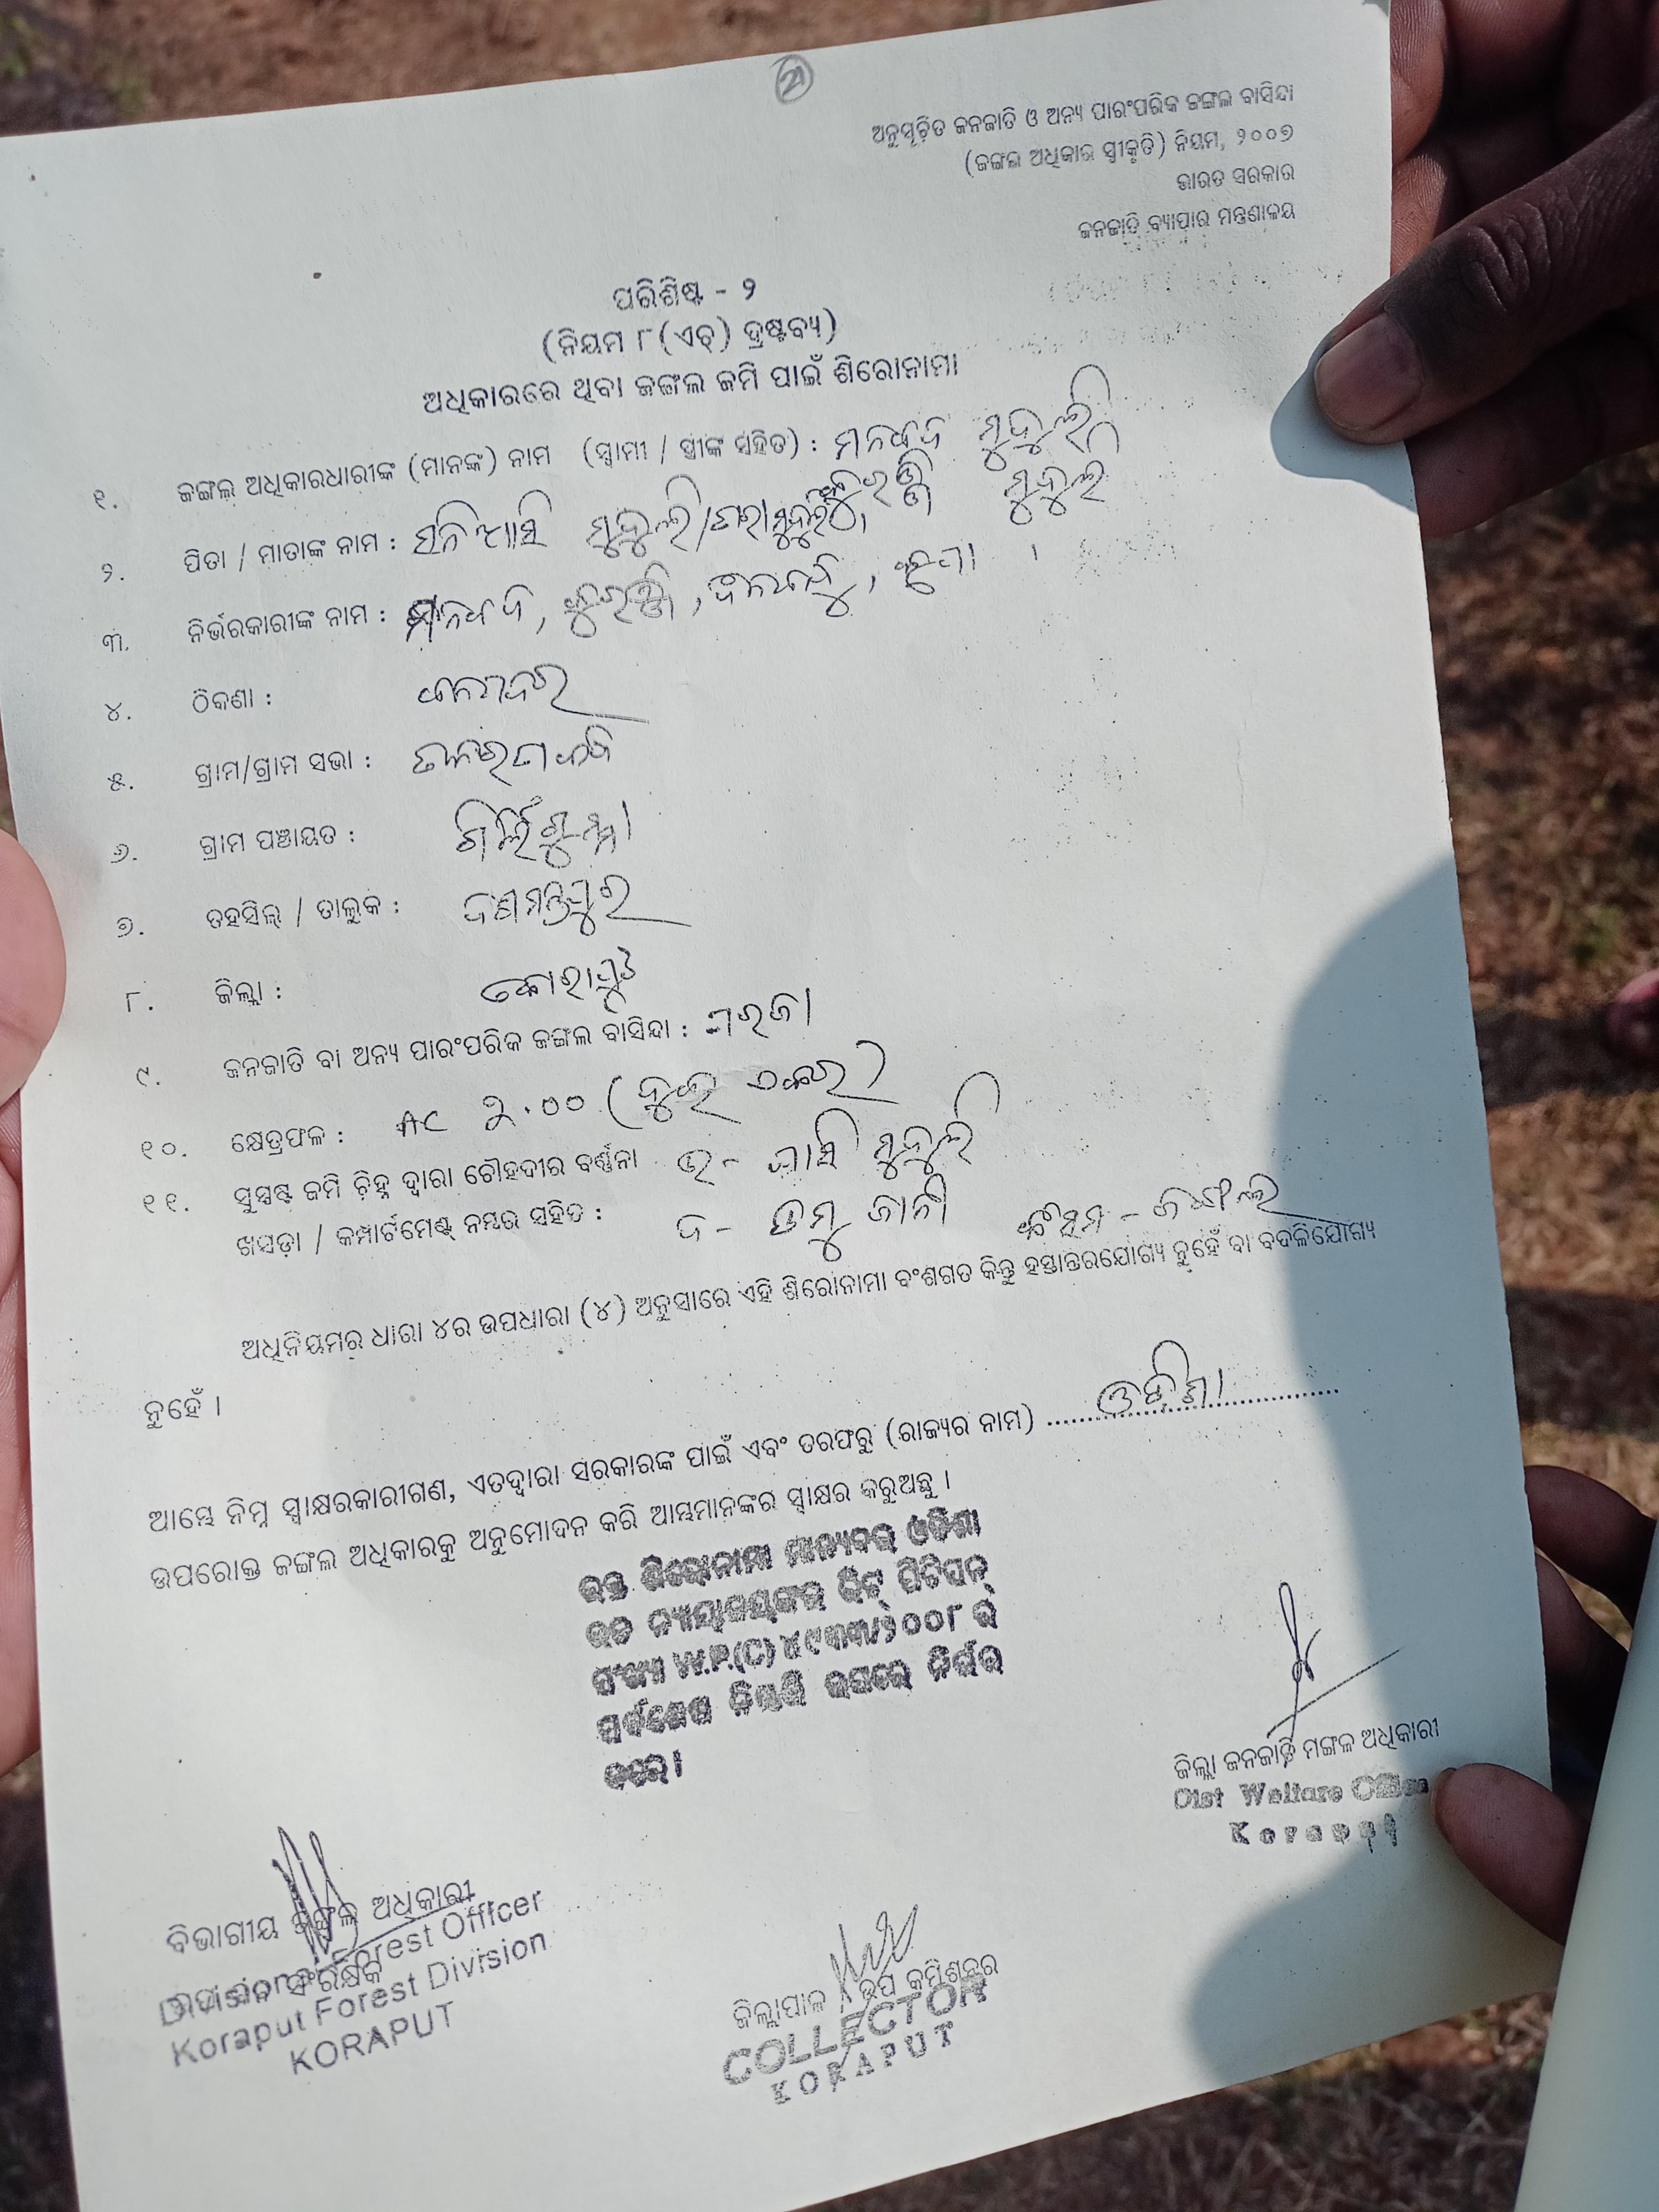 21
ଅନୁସୂଚିତ ଜନଜାତି ଓ ଅନ୍ୟ ପାରଂପରିକ ଜଙ୍ଗଲ ବାସିନ୍ଦା
(ଜଙ୍ଗଲ ଅଧିକାର ସ୍ୱୀକୃତି) ନିୟମ, ୨୦୦୭
ଭାରତ ସରକାର
ଜନଜାତି ବ୍ୟାପାର ମନ୍ତ୍ରଣାଳୟ
ପରିଶିଷ୍ଟ - ୨
(ନିୟମ ୮(ଏଚ୍) ଦ୍ରଷ୍ଟବ୍ୟ)
ଅଧିକାରରେ ଥିବା ଜଙ୍ଗଲ ଜମି ପାଇଁ ଶିରୋନାମା
୧. ଜଙ୍ଗଲ ଅଧିକାରଧାରୀଙ୍କ (ମାନଙ୍କ) ନାମ (ସ୍ୱାମୀ / ସ୍ତ୍ରୀଙ୍କ ସହିତ) : ମୁଦୁଲି
ମୁଦୁଲି
୨. ପିତା / ମାତାଙ୍କ ନାମ : ମୁଦୁଲି
୩. ନିର୍ଭରକାରୀଙ୍କ ନାମ :
୪. ଠିକଣା :
୫. ଗ୍ରାମ/ଗ୍ରାମ ସଭା :
୬. ଗ୍ରାମ ପଞ୍ଚାୟତ :
୭. ତହସିଲ୍ / ତାଲୁକ : ଦଶମନ୍ତପୁର
୮. ଜିଲ୍ଲା : କୋରାପୁଟ
୯. ଜନଜାତି ବା ଅନ୍ୟ ପାରଂପରିକ ଜଙ୍ଗଲ ବାସିନ୍ଦା : ପରଜା
୧୦. କ୍ଷେତ୍ରଫଳ : ୨.୦୦ (ଦୁଇ ଏକର)
୧୧. ସୁସ୍ପଷ୍ଟ ଜମି ଚିହ୍ନ ଦ୍ୱାରା ଚୌହଦୀର ବର୍ଣ୍ଣନା ଉ - ମୁଦୁଲି
ଖସଡ଼ା / କମ୍ପାର୍ଟମେଣ୍ଟ୍ ନମ୍ବର ସହିତ : ଦ - ଡମ୍ବୁ ଜାନୀ - ଜଙ୍ଗଲ
ଅଧିନିୟମର ଧାରା ୪ର ଉପଧାରା (୪) ଅନୁସାରେ ଏହି ଶିରୋନାମା ବଂଶଗତ କିନ୍ତୁ ହସ୍ତାନ୍ତରଯୋଗ୍ୟ ନୁହେଁ ବା ବଦଳିଯୋଗ୍ୟ
ନୁହେଁ ।
ଆମ୍ଭେ ନିମ୍ନ ସ୍ୱାକ୍ଷରକାରୀଗଣ, ଏତଦ୍ୱାରା ସରକାରଙ୍କ ପାଇଁ ଏବଂ ତରଫରୁ (ରାଜ୍ୟର ନାମ) ........ ଓଡ଼ିଶା ........
ଉପରୋକ୍ତ ଜଙ୍ଗଲ ଅଧିକାରକୁ ଅନୁମୋଦନ କରି ଆମ୍ଭମାନଙ୍କର ସ୍ୱାକ୍ଷର କରୁଅଛୁ ।
ଉକ୍ତ ଶିରୋନାମା ମାନ୍ୟବର ଓଡିଶା
ଉଚ୍ଚ ନ୍ୟାୟାଳୟଙ୍କର ରିଟ୍ ପିଟିସନ୍
ସଂଖ୍ୟା W.P.(C) ୪୯୩୩/୨୦୦୮ ର
ସର୍ବଶେଷ ନିଷ୍ପତ୍ତି ଉପରେ ନିର୍ଭର
କରେ।
ଜିଲ୍ଲା ଜନଜାତି ମଙ୍ଗଳ ଅଧିକାରୀ
Dist Welfare Officer
Koraput
ବିଭାଗୀୟ ଜଙ୍ଗଲ ଅଧିକାରୀ
ଉପ ବନ ସଂରକ୍ଷକ
Divisional Forest Officer
Koraput Forest Division
KORAPUT
ଜିଲ୍ଲାପାଳ / ଉପ କମିଶନର
COLLECTOR
KORAPUT